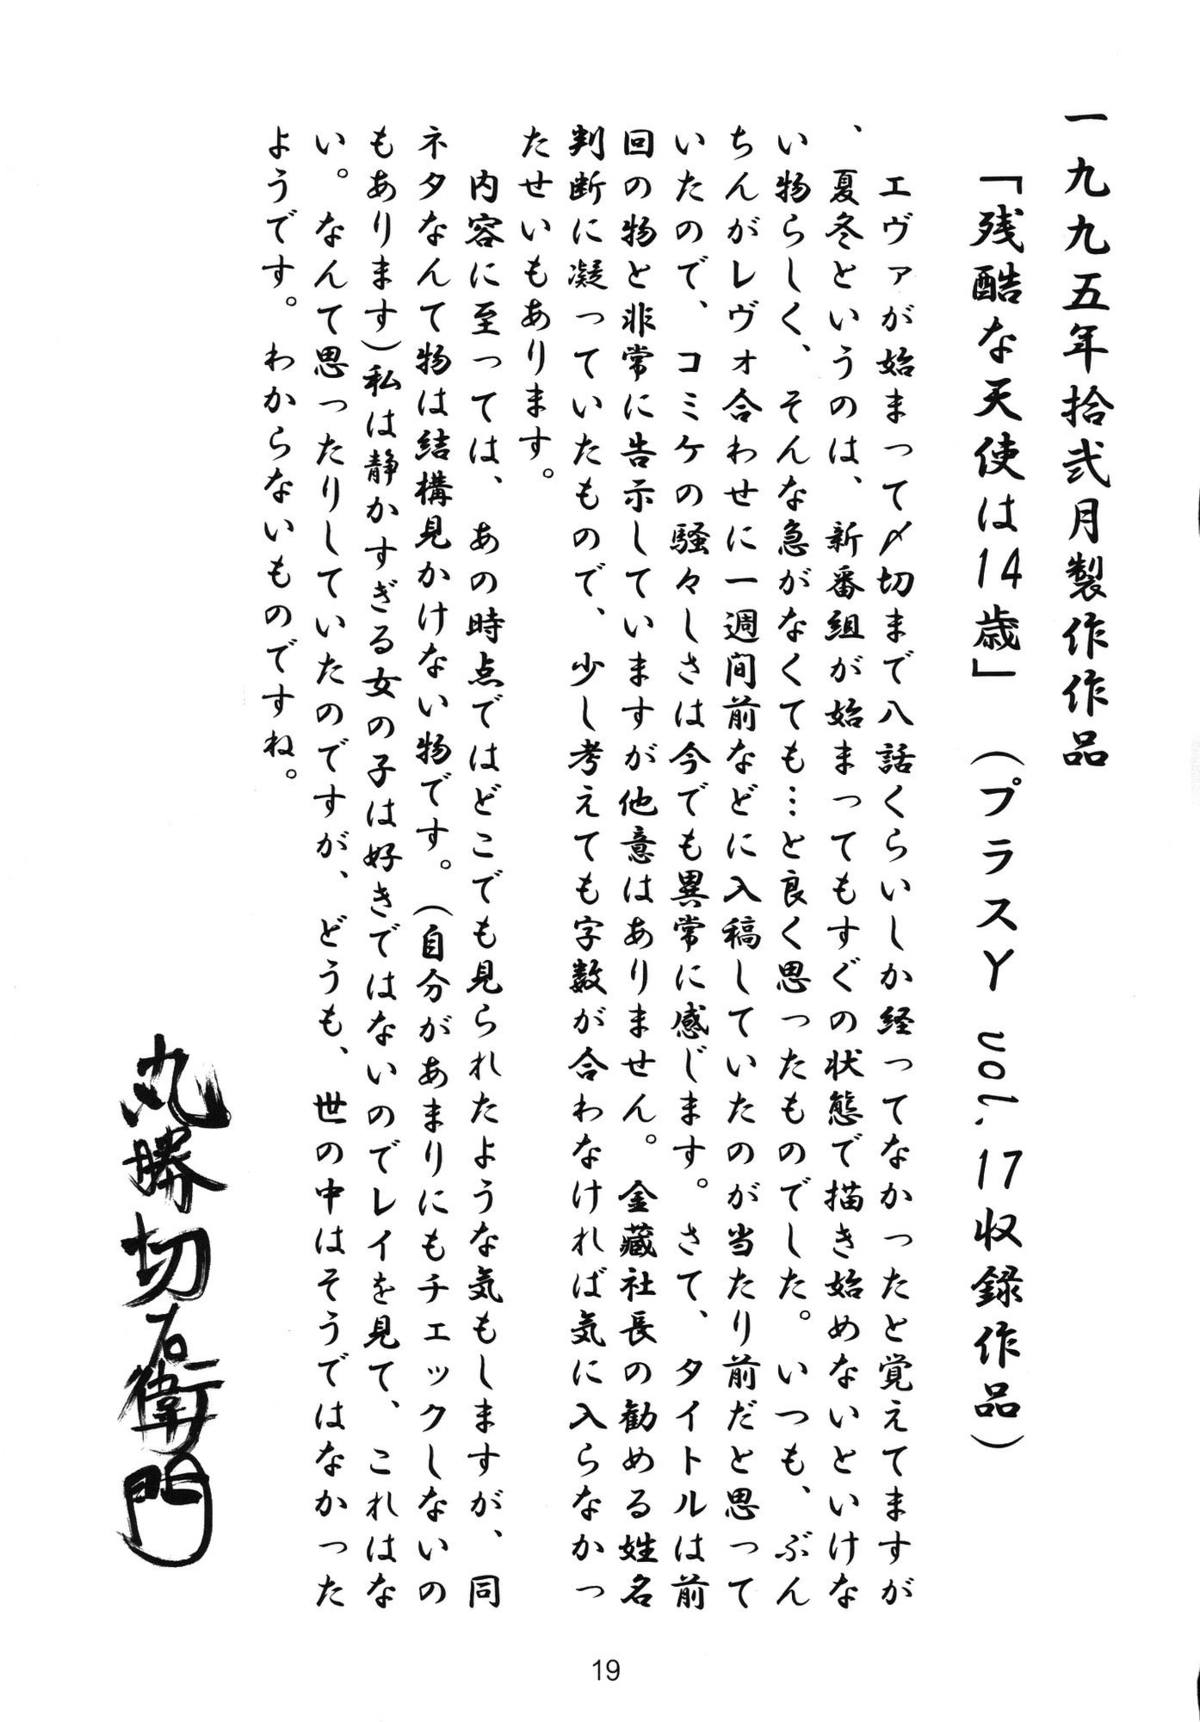 一九九五年拾弐月製作作品
「残酷な天使は14歳」　（プラスY vol. 17収録作品）
　エヴァが始まって〆切まで八話くらいしか経ってなかったと覚えてますが
、夏冬というのは、新番組が始まってもすぐの状態で描き始めないといけな
い物らしく、そんな急がなくても…と良く思ったものでした。いつも、ぶん
ちんがレヴォ合わせに一週間前などに入稿していたのが当たり前だと思って
いたので、コミケの騒々しさは今でも異常に感じます。さて、タイトルは前
回の物と非常に告示していますが他意はありません。金蔵社長の勧める姓名
判断に凝っていたもので、少し考えても字数が合わなければ気に入らなかっ
たせいもあります。
　内容に至っては、あの時点ではどこでも見られたような気もしますが、同
ネタなんて物は結構見かけない物です。（自分があまりにもチェックしないの
もあります）私は静かすぎる女の子は好きではないのでレイを見て、これはな
い。なんて思ったりしていたのですが、どうも、世の中はそうではなかった
ようです。わからないものですね。
丸勝切右衛門
19